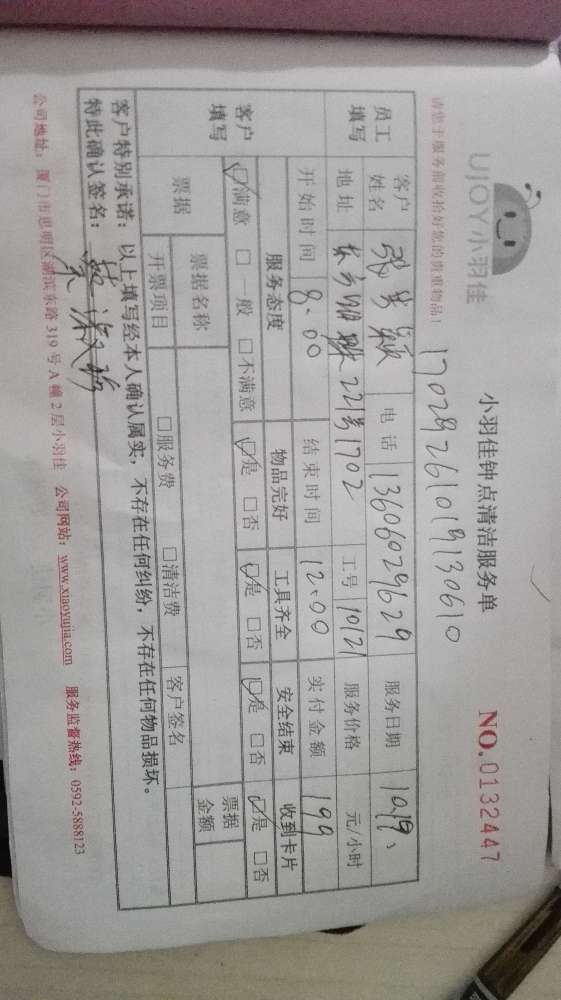 UJOY小羽佳
小羽佳钟点清洁服务单
NO.0132447
请您于服务前收拾好您的贵重物品!
17029261019130610
员工填写 客户姓名 电话 13606029629 服务日期 10.19、
地址 221号1702 工号 10121 服务价格 元/小时
开始时间 8.00 结束时间 12.00 实付金额 199
客户填写 服务态度 物品完好 工具齐全 安全结束 收到卡片
☑满意 □一般 □不满意 ☑是 □否 ☑是 □否 ☑是 □否 ☑是 □否
票据 票据名称 票据金额
开票项目 □服务费 □清洁费 客户签名
客户特别承诺:以上填写经本人确认属实,不存在任何纠纷,不存在任何物品损坏。
特此确认签名:
公司地址:厦门市思明区湖滨东路319号A幢2层小羽佳 公司网站:www.xiaoyujia.com 服务监督热线:0592-5888123